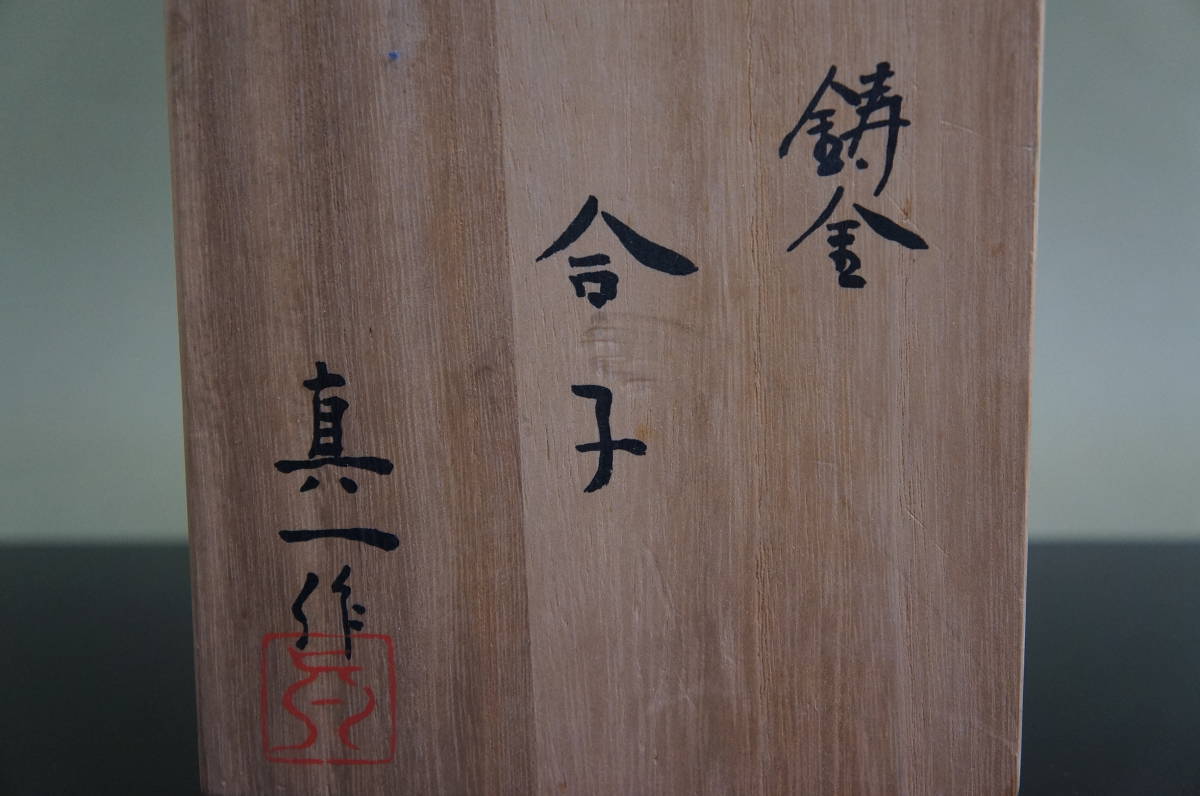 鋳金
合子
真一作